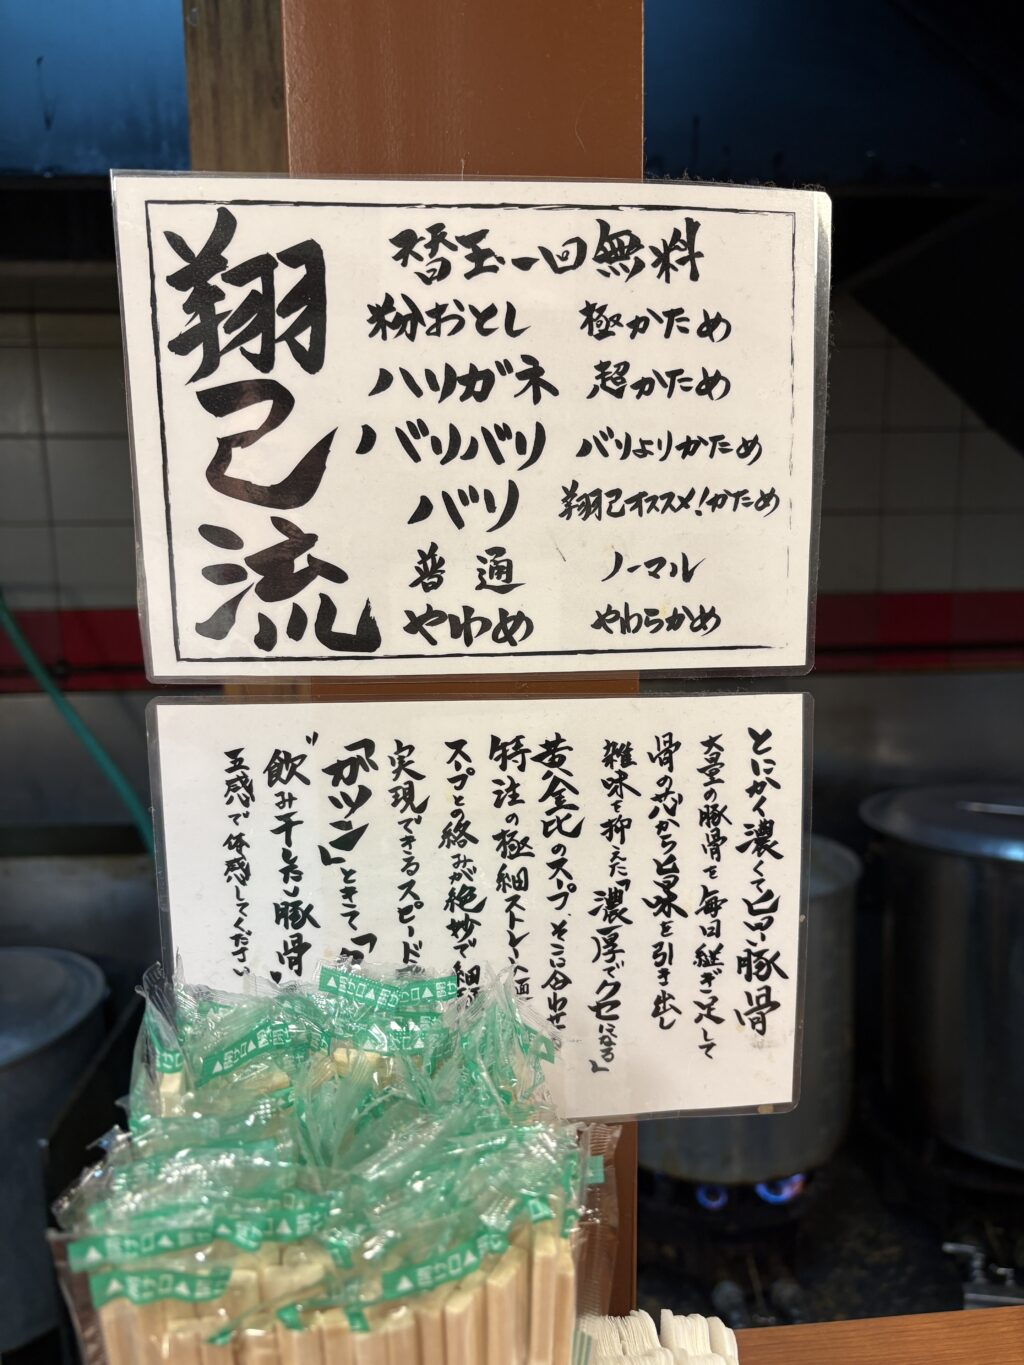 翔己流
替玉一回無料
粉おとし 極かため
ハリガネ 超かため
バリバリ バリよりかため
バリ 翔己オススメ!かため
普通 ノーマル
やわめ やわらかめ
とにかく濃くて旨い豚骨
大量の豚骨を毎日継ぎ足して
骨の芯から旨味を引き出し
雑味を抑えた「濃厚でクセになる」
黄金比のスープ、そこに合わせ
特注の極細ストレート麺
スープとの絡みが絶妙で細
実現できるスピード
「ガツン」ときて「
"飲み干したい豚骨"
五感で体感してください